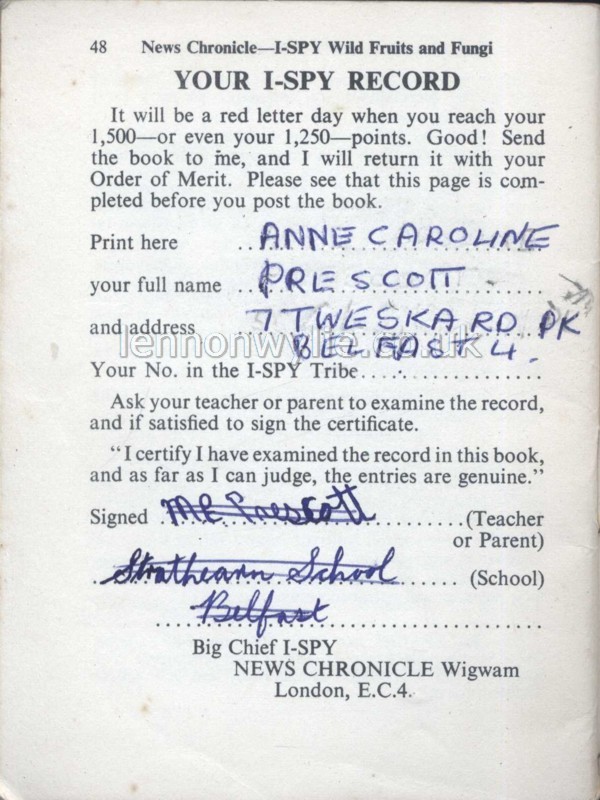 48 News Chronicle—I-SPY Wild Fruits and Fungi
YOUR I-SPY RECORD
It will be a red letter day when you reach your
1,500—or even your 1,250—points. Good! Send
the book to me, and I will return it with your
Order of Merit. Please see that this page is com-
pleted before you post the book.
Print here ..ANNE CAROLINE
your full name ..PRESCOTT
and address 7 TWESKARD PK
BELFAST 4.
lennonwylie.co.uk
Your No. in the I-SPY Tribe....................
Ask your teacher or parent to examine the record,
and if satisfied to sign the certificate.
“I certify I have examined the record in this book,
and as far as I can judge, the entries are genuine.”
Signed .Prescott..........(Teacher
or Parent)
Strathearn School ....... (School)
Belfast
Big Chief I-SPY
NEWS CHRONICLE Wigwam
London, E.C.4.